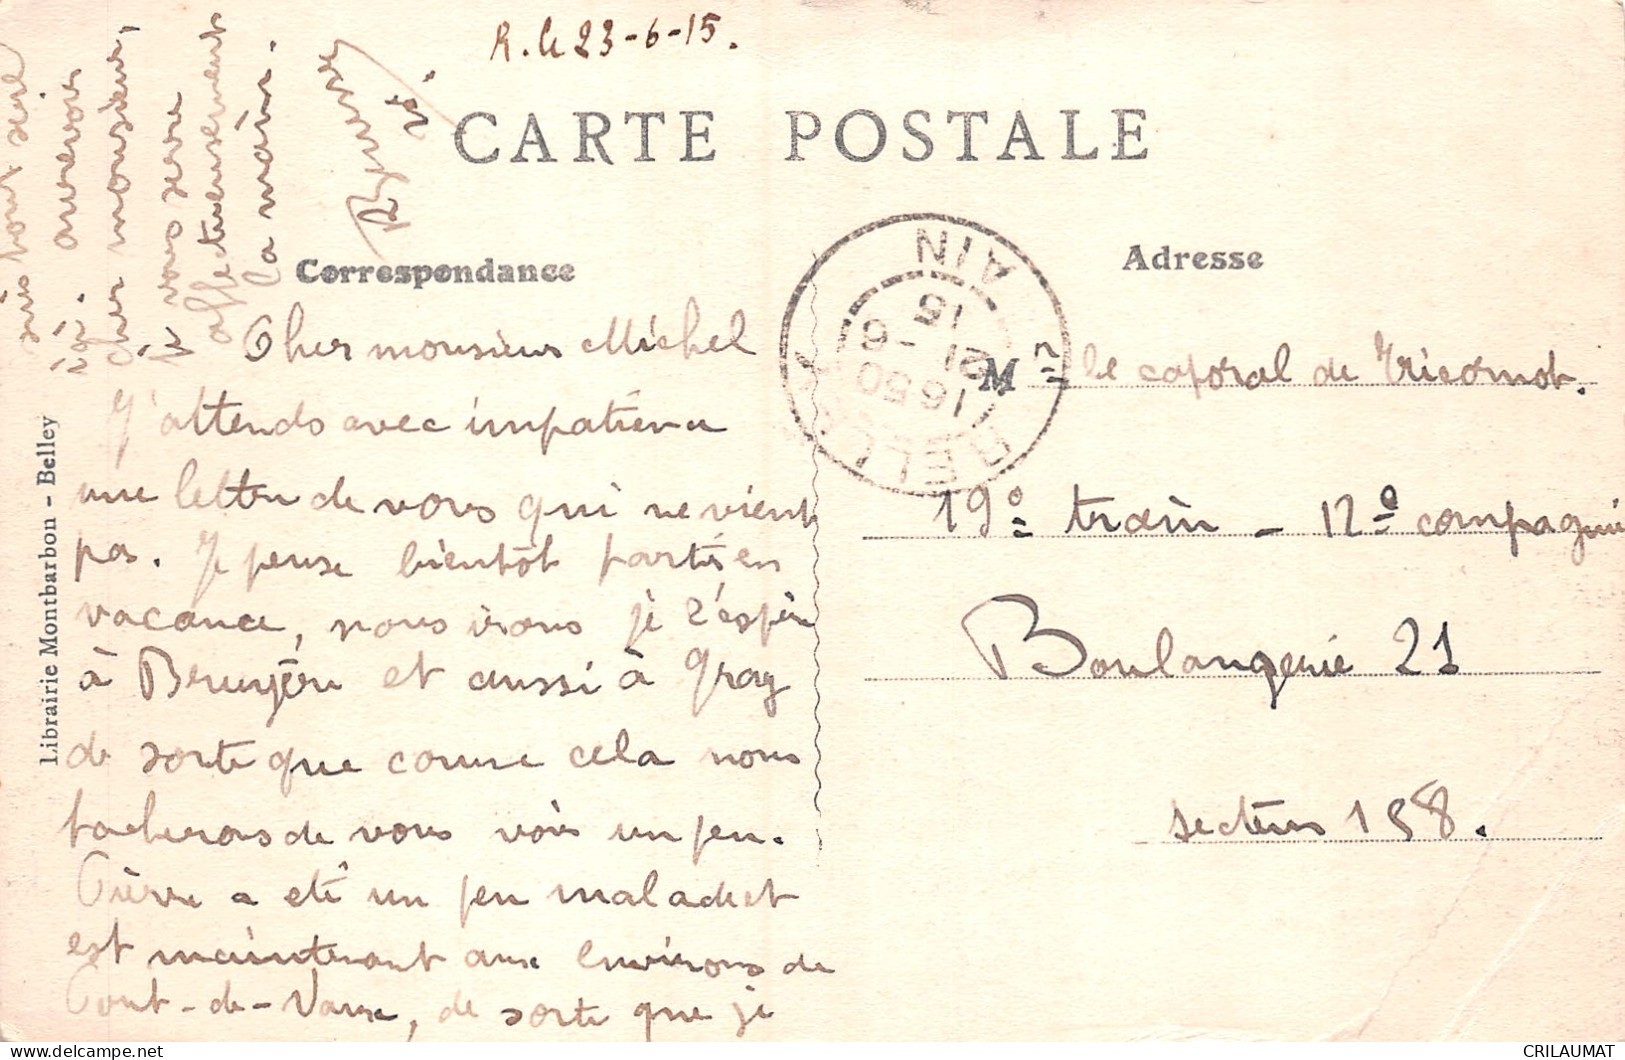 R. le 23-6-15.
CARTE POSTALE
Correspondance
Adresse
Cher monsieur Michel
J'attends avec impatience
une lettre de vous qui ne vient
pas. Je pense bientôt partir en
vacance, nous irons je l'espère
à Bruyère et aussi à Gray
de sorte que comme cela nous
tacherons de vous voir un peu.
Pierre a été un peu malade et
est maintenant aux environs de
Pont-de-Vaux, de sorte que je
suis tout seul
ici. aurevoir
cher monsieur,
je vous serre
affectueusement
la main.
Mr le caporal de Tricornot.
19e train - 12e compagnie
Boulangerie 21
secteur 158.
BELLEY
16 50
21 - 6
15
AIN
Librairie Montbarbon - Belley
CRILAUMAT